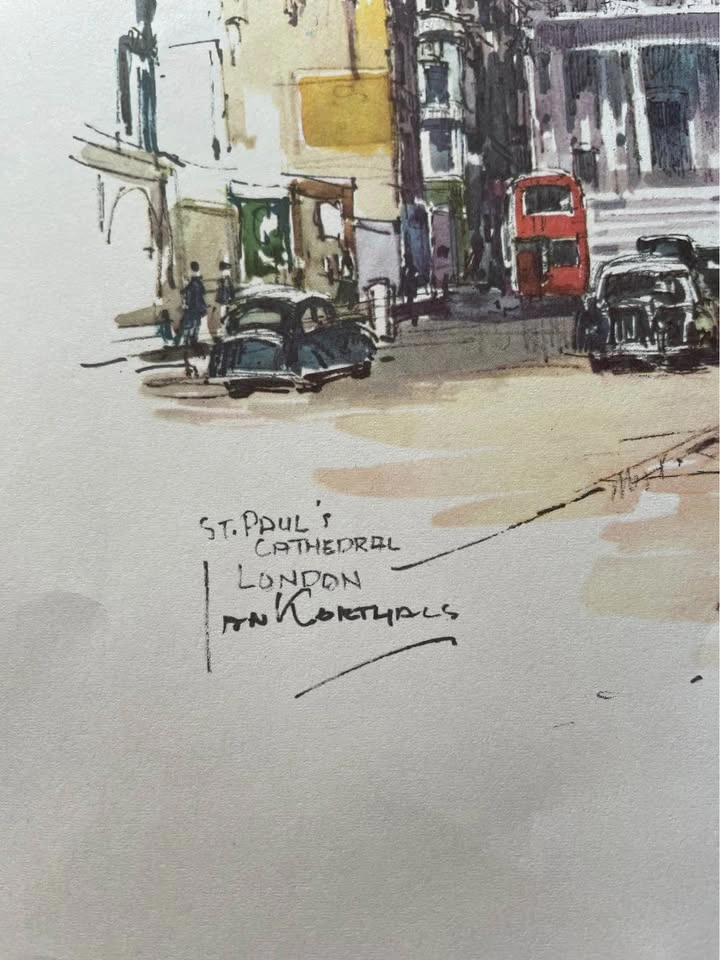 ST. PAUL'S
CATHEDRAL
LONDON
JAN KORTHALS